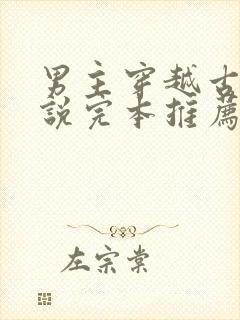 男主穿越古
说完本推荐
左宗棠